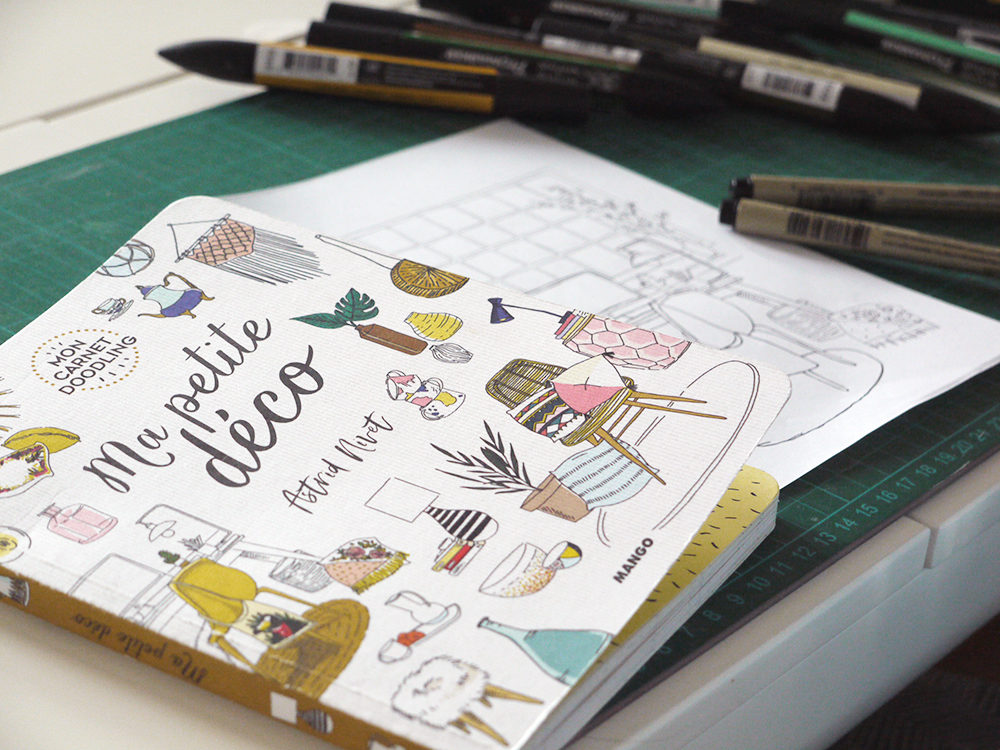 MON
CARNET
DOODLING
Ma petite
déco
Astrid Nivet
MANGO
Ma petite déco
7 8 9 10 11 12 13 14 15 16 17 18 19 20